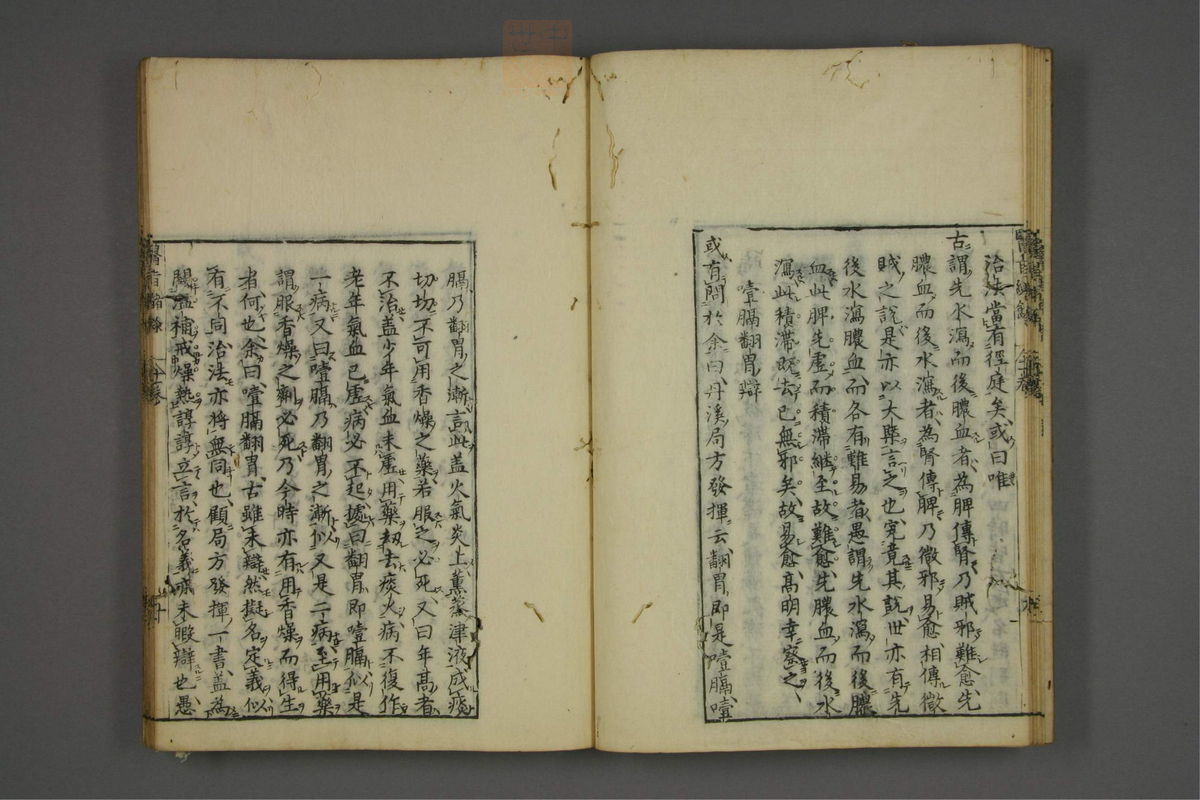 治法當有徑庭矣或曰唯
古謂先水瀉而後膿血者為脾傳腎乃賊邪難愈先
膿血而後水瀉者為腎傳脾乃微邪易愈相傳微
賊之說是亦以大槩言之也究竟其說世亦有先
後水瀉膿血而各有難易者愚謂先水瀉而後膿
血此脾先虛而積滯繼至故難愈先膿血而後水
瀉此積滯既去已無邪矣故易愈高明幸察之
噎膈翻胃辯
或有問於余曰丹溪局方發揮云翻胃即是噎膈噎
膈乃翻胃之漸言此盖火氣炎上薰蒸津液成痰
切切不可用香燥之藥若服之必死又曰年高者
不治盖少年氣血未虛用藥劫去痰火病不復作
老年氣血已虛病必不起據曰翻胃即噎膈似是
一病又曰噎膈乃翻胃之漸似又是二病至用藥
謂服香燥之劑必死乃今時亦有用香燥而得生
者何也余曰噎膈翻胃古雖未辯然擬名定義似
有不同治法亦將無同也顧局方發揮一書盖為
闢温補戒燥熱諄諄立言於名義或未暇辯也愚